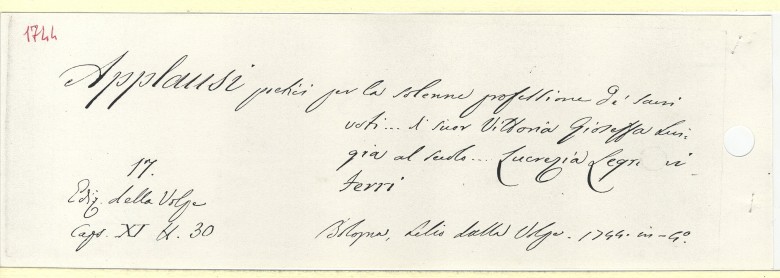 1744
Applausi poetici per la solenne professione de' sacri
voti... di suor Vittoria Gioseffa Lui-
gia al secolo... Lucrezia Legri vi-
terri
17.
Ediz. della Volpe
Caps. XI N. 30
Bologna, Lelio dalla Volpe. 1744. in-4º.